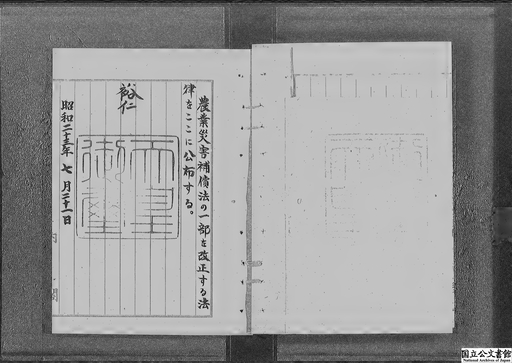 農業災害補償法の一部を改正する法
律をここに公布する。
裕仁
天皇
御璽
昭和二十三年七月二十一日
国立公文書館
National Archives of Japan